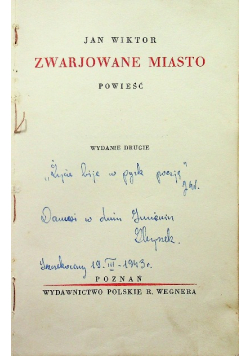 JAN WIKTOR
ZWARJOWANE MIASTO
POWIEŚĆ
WYDANIE DRUGIE
„Życie bije w pysk poezją"
Danusi w dniu Imienin
Zbyszek.
19. III - 1943 r.
POZNAŃ
WYDAWNICTWO POLSKIE R. WEGNERA